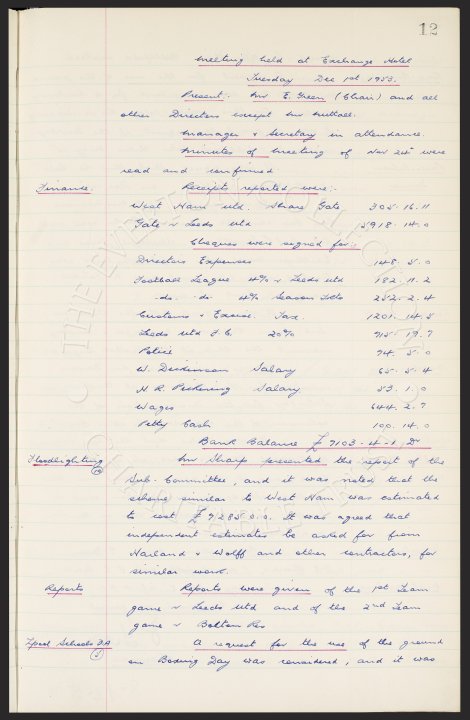 12
Meeting held at Exchange Hotel
Tuesday Dec 1st 1953.
Present:- Mr E. Green (Chair) and all
other Directors except Mr Nuttall.
Manager & Secretary in attendance.
Minutes of Meeting of Nov 24th were
read and confirmed
Finance. Receipts reported were:-
West Ham Utd. Share Gate 305-16-11
Gate v Leeds Utd 5918-14-0
Cheques were signed for:-
Directors Expenses 148-5-0
Football League 4% v Leeds Utd 182-11-2
-do- do- 4% Season Tkts 252-2-4
Customs & Excise. Tax. 1201-14-5
Leeds Utd F.C. 20% 915-19-7
Police 74-5-0
W. Dickinson Salary 65-5-4
H.R. Pickering Salary 53-1-0
Wages 644-2-7
Petty Cash 100-14-0
Bank Balance £7103-4-1 Dr
Floodlighting Mr Sharp presented the report of the
Sub-Committee, and it was noted that the
scheme similar to West Ham was estimated
to cost £9285-0-0. It was agreed that
independent estimates be asked for from
Harland & Wolff and other contractors, for
similar work.
Reports Reports were given of the 1st Team
game v Leeds Utd and of the 2nd Team
game v Bolton Res
L'pool Schools F.A A request for the use of the ground
on Boxing Day was considered, and it was